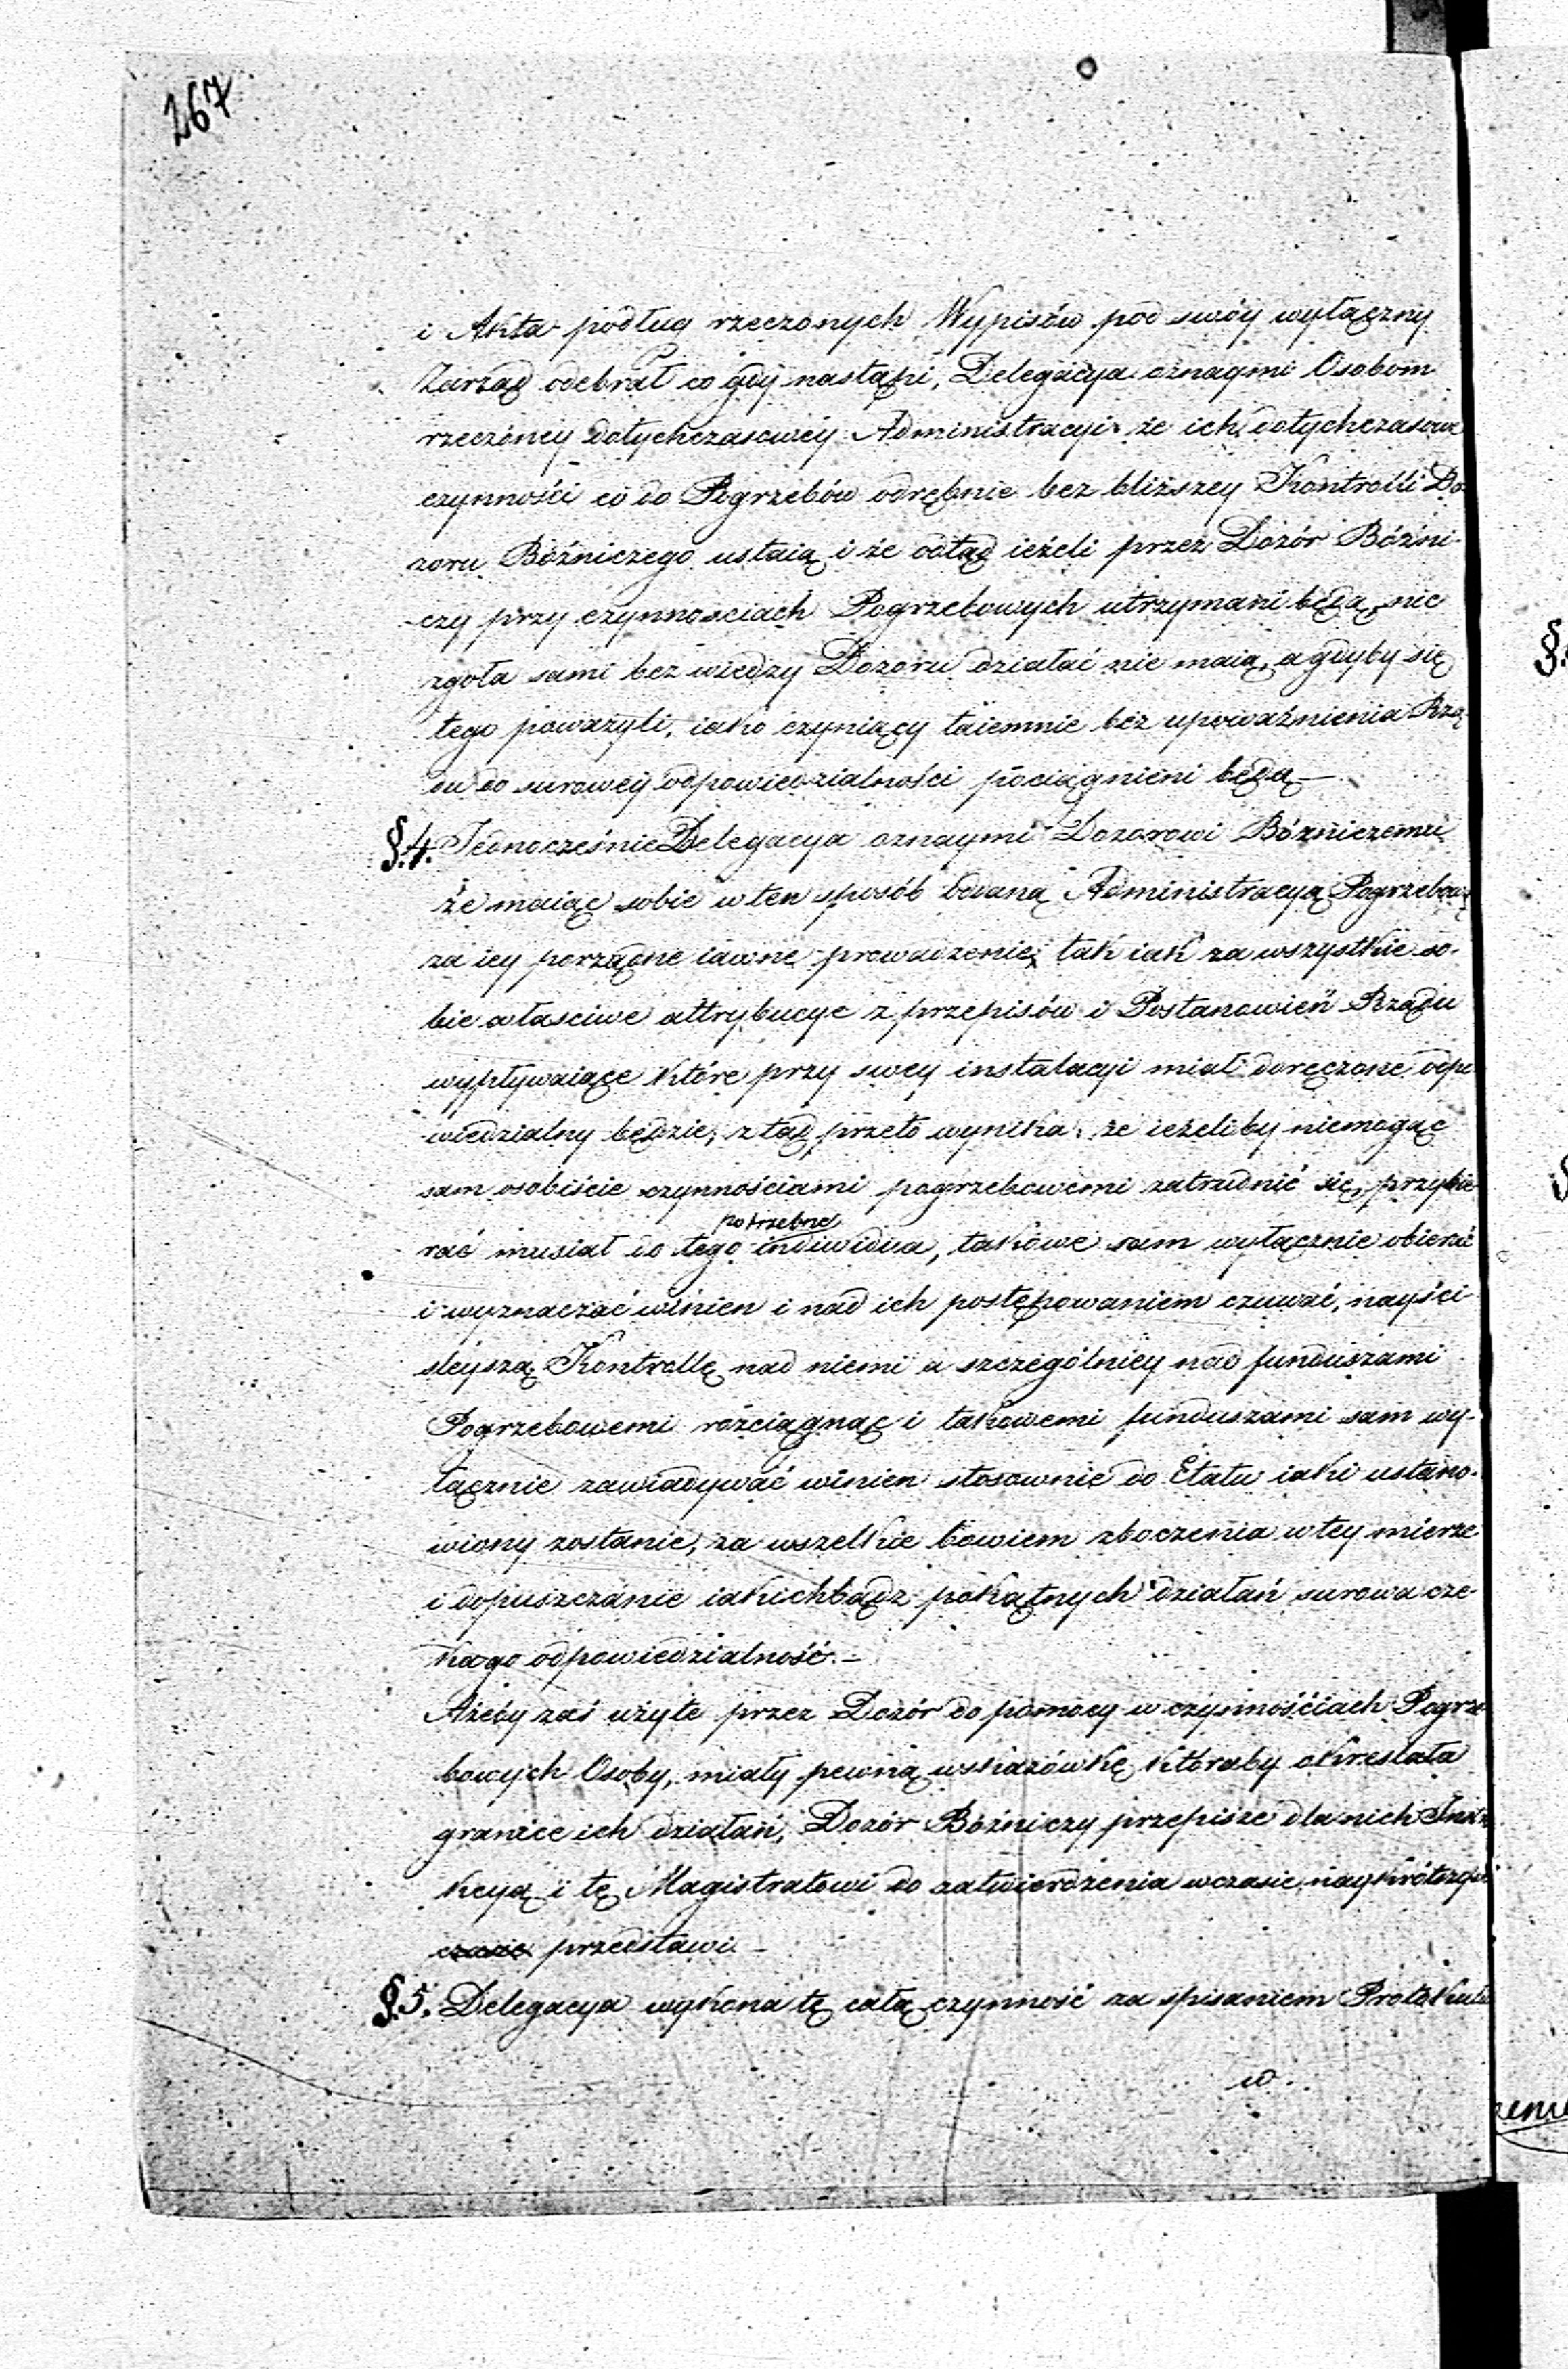 267
i Akta podług rzeczonych Wypisów pod swóy wyłączny
Zarząd odebrał co gdy nastąpi, Delegacya oznaymi Osobom
rzeczoney dotychczasowey Administracyi że ich dotychczasowe
czynności co do Pogrzebów odrębnie bez bliższey Kontrolli Do-
zoru Bóźniczego ustaią i że odtąd ieżeli przez Dozór Bóźni-
czy przy czynnosciach Pogrzebowych utrzymani będą, nic
zgoła sami bez wiedzy Dozoru działać nie maią, a gdyby się
tego poważyli, iako czyniący taiemnie bez upoważnienia Rzą-
du do surowey odpowiedzialności pociągnieni będą —
§. 4. Jednocześnie Delegacya oznaymi Dozorowi Bóźniczemu
że maiąc sobie w ten sposób oddaną Administracyą Pogrzebową
za iey porządne iawne prowadzenie, tak iak za wszystkie so-
bie właściwe attrybucye z przepisów i Postanowień Rządu
wypływaiące które przy swey instalacyi miał doręczone odpo
wiedzialny będzie, z tąd przeto wynika, że ieżeliby niemogąc
sam osobiście czynnościami pogrzebowemi zatrudnić się, przybie-
potrzebne
rać musiał do tego indiwidua, takowe sam wyłącznie obierać
i wyznaczać winien i nad ich postępowaniem czuwać, nayści-
śleyszą Kontrollę nad niemi a szczególniey nad funduszami
Pogrzebowemi rozciągnąć i takowemi funduszami sam wy-
łącznie zawiadywać winien stosownie do Etatu iaki ustano-
wiony zostanie, za wszelkie bowiem zboczenia w tey mierze
i dopuszczanie iakichbądź pokątnych działań surowa cze-
ka go odpowiedzialność. —
Ażeby zaś użyte przez Dozór do pomocy w czynnościach Pogrze
bowych Osoby, miały pewną wskazówkę któraby okreslała
granice ich działań, Dozór Bóźniczy przepisze dla nich Instru
kcyą i tę Magistratowi do zatwierdzenia w czasie naykrótszym
czasie przedstawi —
§. 5. Delegacya wykona tę całą czynność za spisaniem Protokułu
w